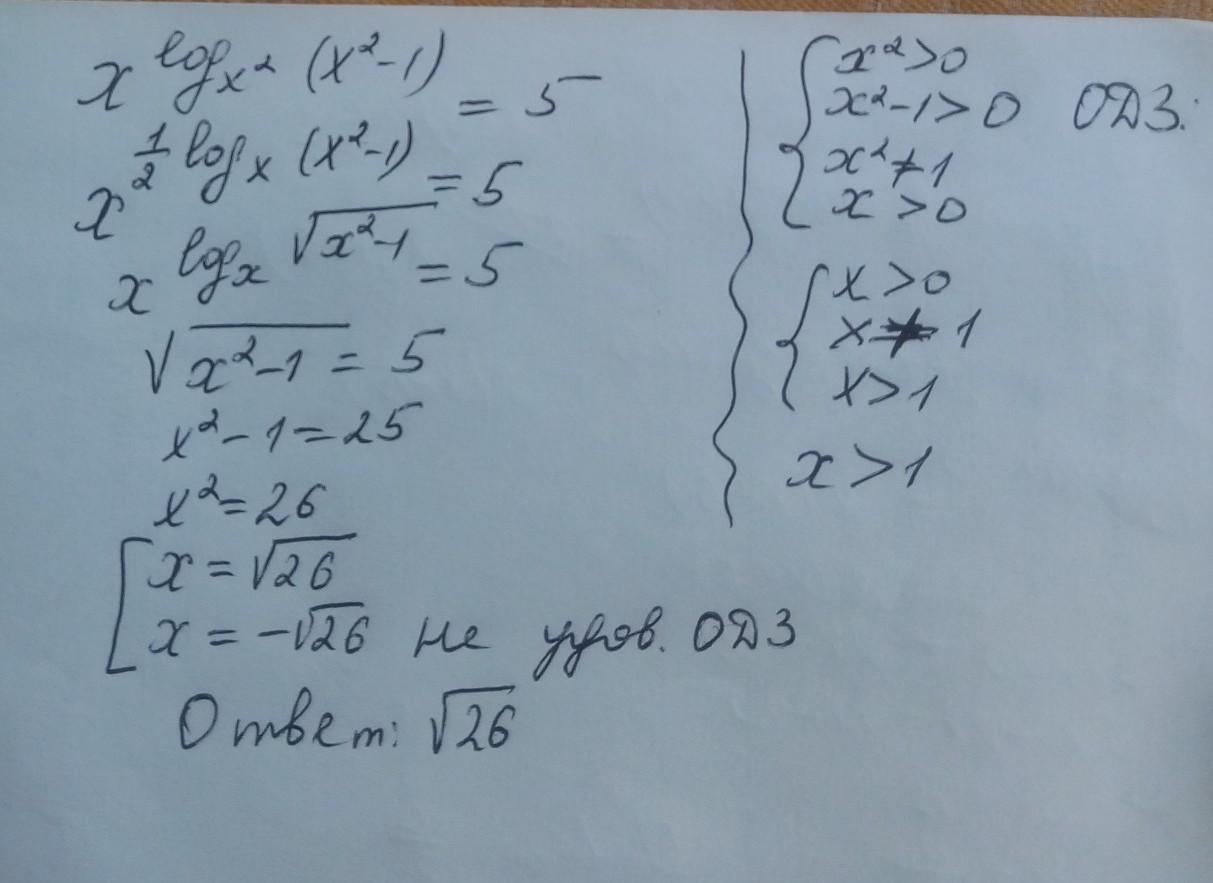 x^{log_{x²}(x²-1)} = 5
x^{½ log_x (x²-1)} = 5
x^{log_x √(x²-1)} = 5
√(x²-1) = 5
x²-1=25
x²=26
[ x = √26
x = -√26 не удов. ОДЗ
Ответ: √26
{ x²>0
x²-1>0 ОДЗ:
x²≠1
x>0
{ x>0
x≠1
x>1
x>1